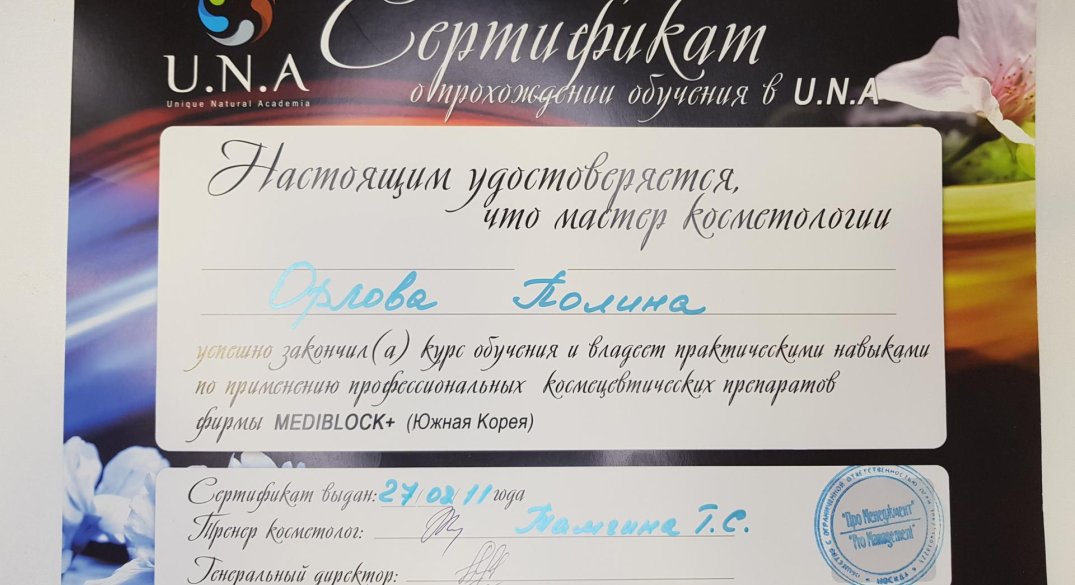 Сертификат
U.N.A
Unique Natural Academia
о прохождении обучения в U.N.A
Настоящим удостоверяется,
что мастер косметологии
Орлова Полина
успешно закончил(а) курс обучения и владеет практическими навыками
по применению профессиональных космецевтических препаратов
фирмы MEDIBLOCK+ (Южная Корея)
Сертификат выдан: 27/02/11 года
Тренер косметолог: Тамгина Т.С.
Генеральный директор:
ОБЩЕСТВО С ОГРАНИЧЕННОЙ ОТВЕТСТВЕННОСТЬЮ
"Про Менеджмент"
"Pro Management"
МОСКВА